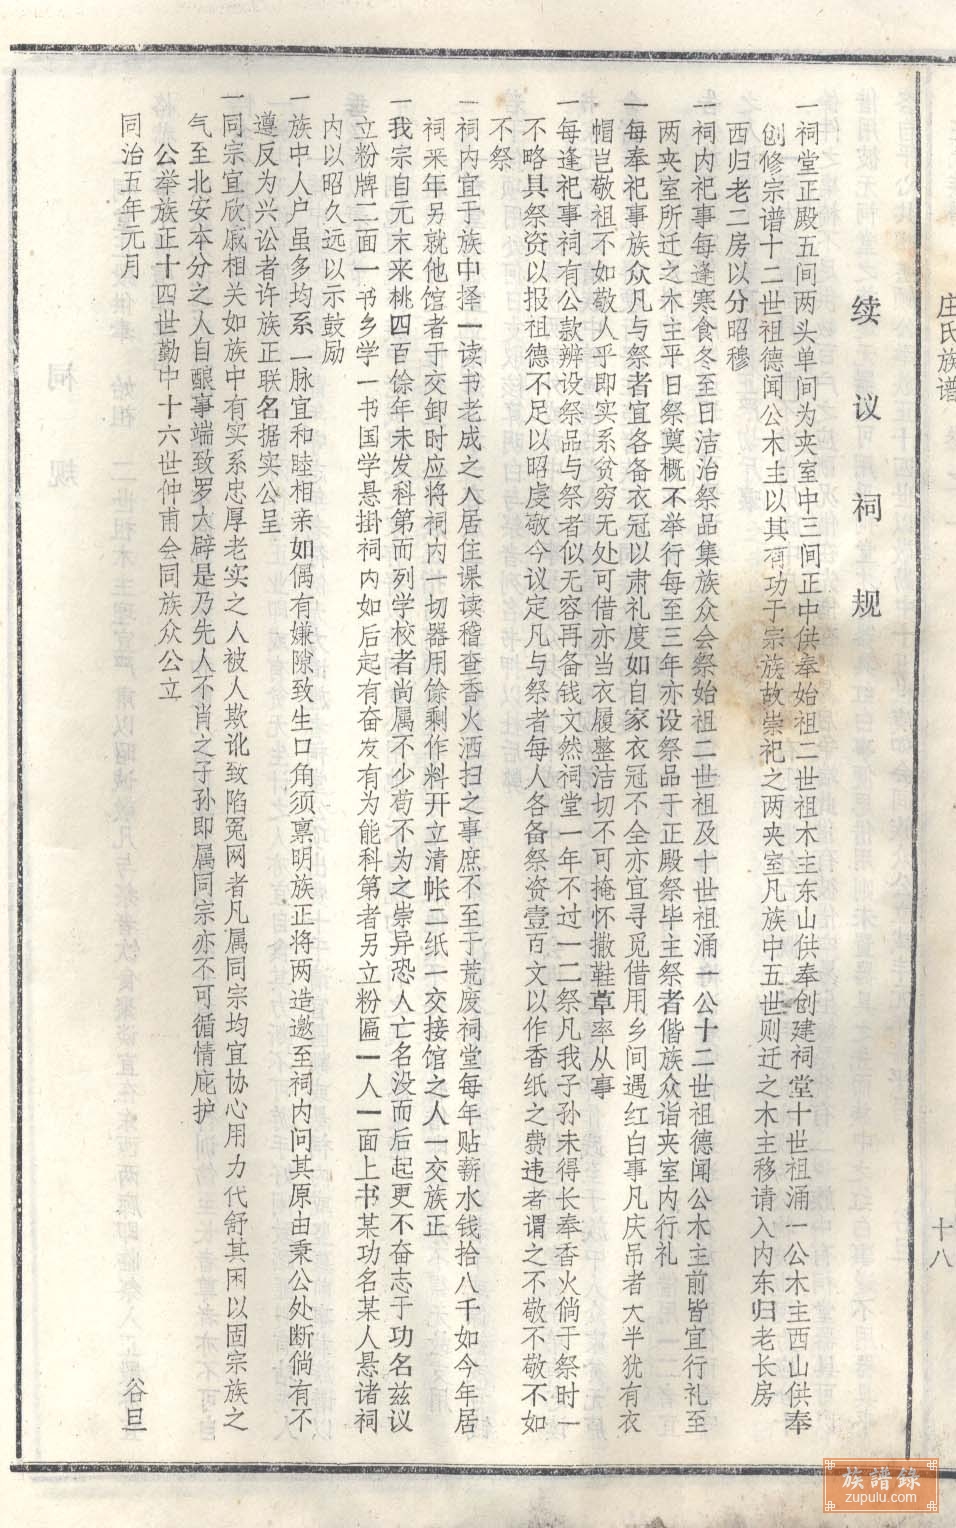 庄氏族谱
十八
续议祠规
一祠堂正殿五间两头单间为夹室中三间正中供奉始祖二世祖木主东山供奉创建祠堂十世祖涌一公木主西山供奉
创修宗谱十二世祖德闻公木主以其有功于宗族故崇祀之两夹室凡族中五世则迁之木主移请入内东归老长房
西归老二房以分昭穆
一祠内祀事每逢寒食冬至日洁治祭品集族众会祭始祖二世祖及十世祖涌一公十二世祖德闻公木主前皆宜行礼至
两夹室所迁之木主平日祭奠概不举行每至三年亦设祭品于正殿祭毕主祭者偕族众诣夹室内行礼
一每奉祀事族众凡与祭者宜各备衣冠以肃礼度如自家衣冠不全亦宜寻觅借用乡间遇红白事凡庆吊者大半犹有衣
帽岂敬祖不如敬人乎即实系贫穷无处可借亦当衣履整洁切不可掩怀撒鞋草率从事
一每逢祀事祠有公款办设祭品与祭者似无容再备钱文然祠堂一年不过一二祭凡我子孙未得长奉香火倘于祭时一
不略具祭资以报祖德不足以昭虔敬今议定凡与祭者每人各备祭资壹百文以作香纸之费违者谓之不敬不敬不如
不祭
一祠内宜于族中择一读书老成之人居住课读稽查香火洒扫之事庶不至于荒废祠堂每年贴薪水钱拾八千如今年居
祠来年另就他馆者于交卸时应将祠内一切器用馀剩作料开立清帐二纸一交接馆之人一交族正
一我宗自元末来桃四百馀年未发科第而列学校者尚属不少苟不为之崇异恐人亡名没而后起更不奋志于功名兹议
立粉牌二面一书乡学一书国学悬掛祠内如后起有奋发有为能科第者另立粉匾一人一面上书某功名某人悬诸祠
内以昭久远以示鼓励
一族中人户虽多均系一脉宜和睦相亲如偶有嫌隙致生口角须禀明族正将两造邀至祠内问其原由秉公处断倘有不
遵反为兴讼者许族正联名据实公呈
一同宗宜欣戚相关如族中有实系忠厚老实之人被人欺讹致陷冤网者凡属同宗均宜协心用力代舒其困以固宗族之
气至北安本分之人自酿事端致罗大辟是乃先人不肖之子孙即属同宗亦不可循情庇护
公举族正十四世勤中十六世仲甫会同族众公立
同治五年元月 谷旦
族譜錄
zupulu.com